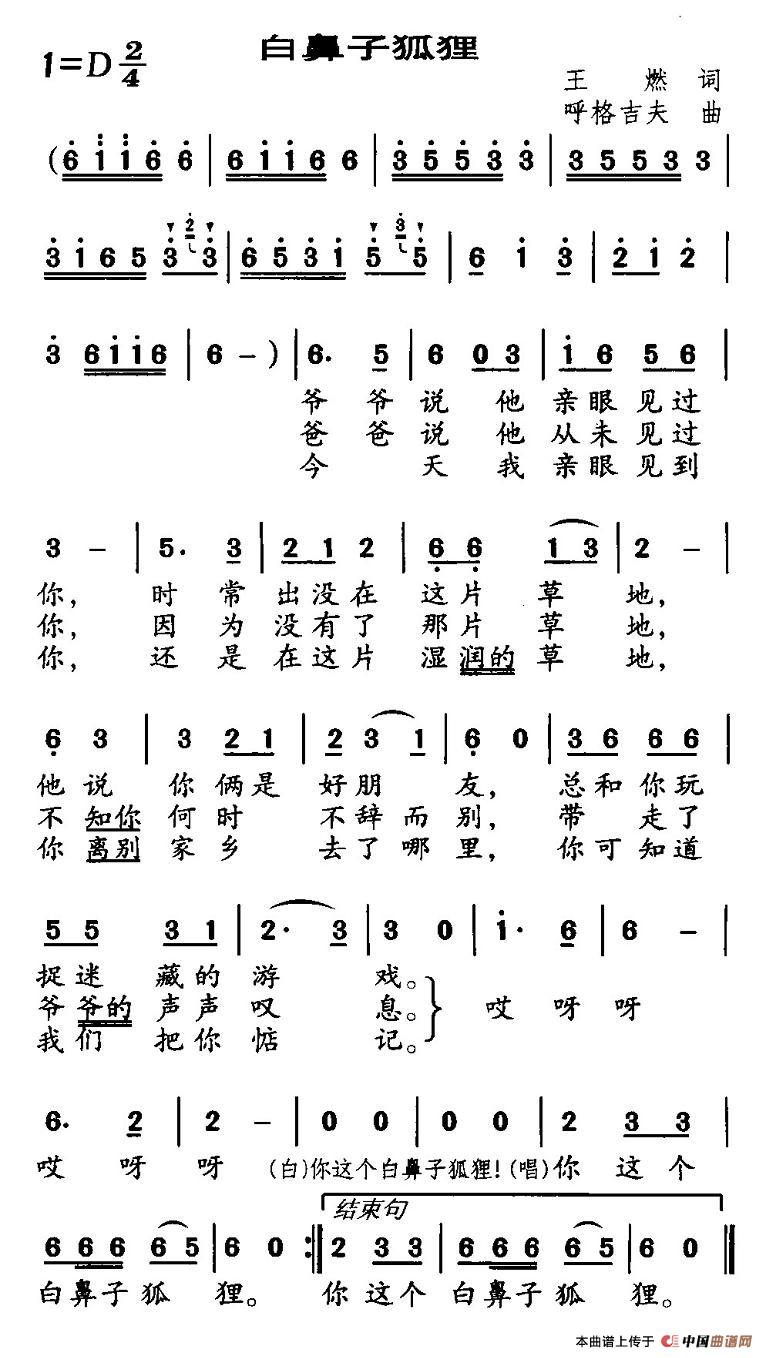 白鼻子狐狸
1=D 2/4
王 燃 词
呼格吉夫 曲
(6 i i i 6 6 | 6 i i 6 6 6 | 3 5 5 3 3 | 3 5 5 3 3 |
3 i 6 5 3 2 3 | 6 5 3 i 5 3 5 | 6 i 3 | 2 i 2 |
3 6 i i 6 | 6 - ) | 6. 5 | 6 0 3 | i 6 5 6 |
爷爷说他亲眼见过
爸爸说他从未见过
今天我亲眼见到
3 - | 5. 3 | 2 1 2 | 6 6 1 3 | 2 - |
你,时常出没在这片草地,
你,因为没有了那片草地,
你,还是在这片湿润的草地,
6 3 | 3 2 1 | 2 3 1 | 6 0 | 3 6 6 6 |
他说你俩是好朋友,总和你玩
不知你何时不辞而别,带走了
你离别家乡去了哪里,你可知道
5 5 3 1 | 2· 3 | 3 0 | i· 6 | 6 - |
捉迷藏的游戏。
爷爷的声声叹息。} 哎呀呀
我们把你惦记。
6. 2 | 2 - | 0 0 | 0 0 | 2 3 3 |
哎呀呀 (白)你这个白鼻子狐狸!(唱)你这个
结束句
6 6 6 6 5 | 6 0 :‖ 2 3 3 3 | 6 6 6 6 5 | 6 0 ‖
白鼻子狐狸。你这个白鼻子狐狸。
本曲谱上传于 中国曲谱网